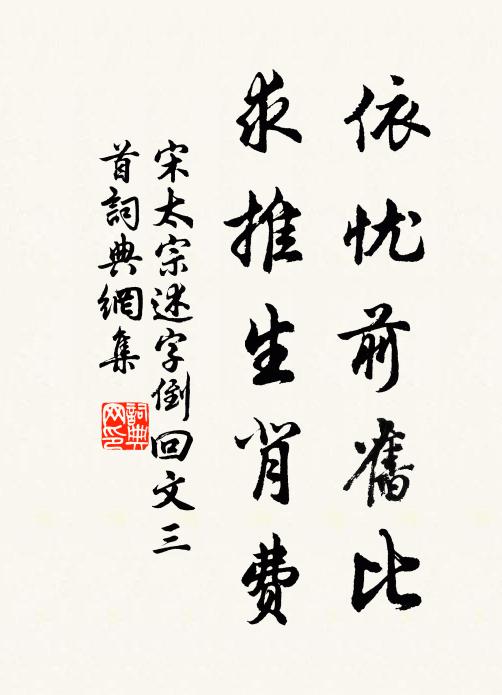 依忧前旧比
求推生肖费
宋太宗述字倒回文三
首词典網集
詞典网印